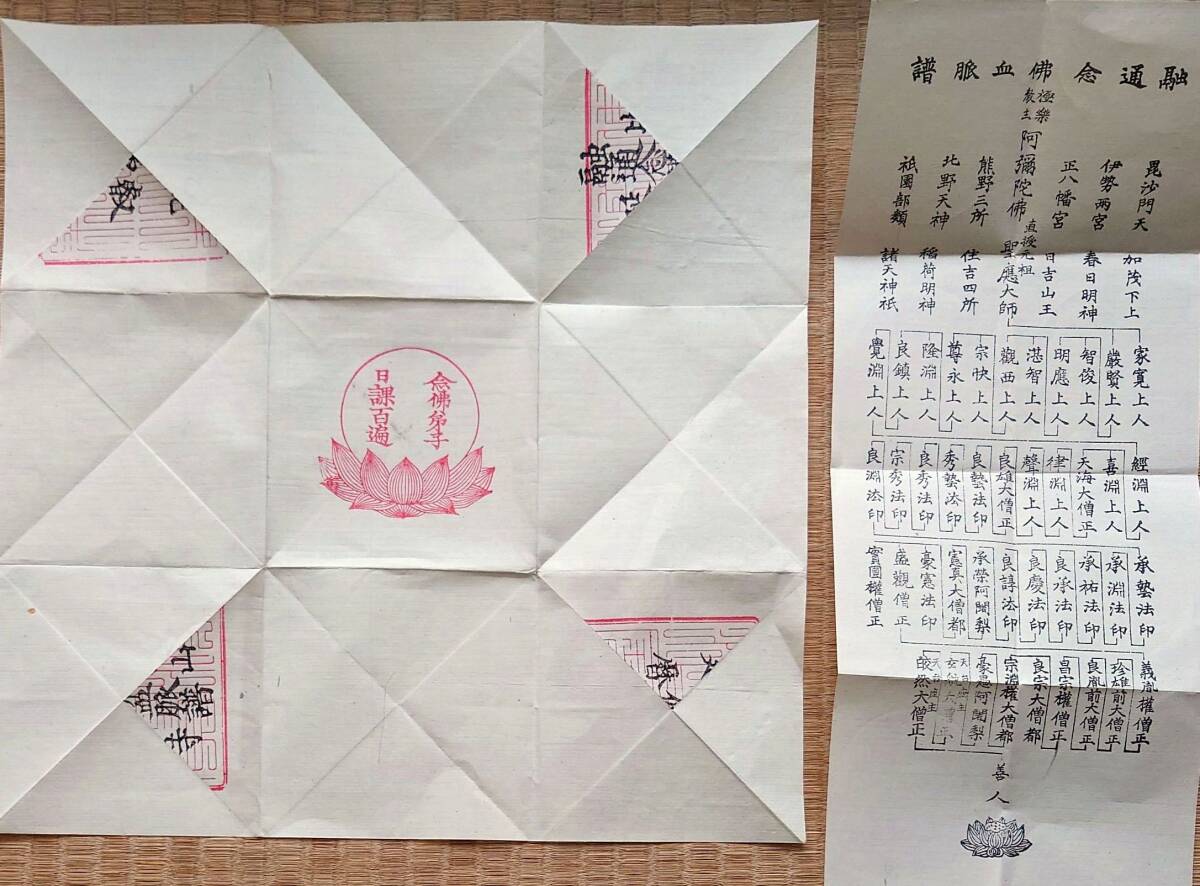 融通念佛血脈譜
極樂
教主
阿彌陀佛
直授元祖
聖應大師
毘沙門天
伊勢兩宮
正八幡宮
熊野三所
北野天神
祇園部類
加茂下上
春日明神
日吉山王
住吉四所
稲荷明神
諸天神祇
家寬上人
嚴賢上人
智俊上人
明應上人
湛智上人
觀西上人
宗快上人
尊永上人
隆淵上人
良鎮上人
覺淵上人
經淵上人
喜淵上人
天海大僧正
律淵上人
聲淵上人
良雄大僧正
良藝法印
秀藝法印
良秀法印
宗秀法印
良淵法印
承藝法印
承淵法印
承祐法印
良承法印
良慶法印
良諄法印
承榮阿闍梨
憲真大僧都
豪憲法印
盛觀僧正
實圓權僧正
義胤權僧正
珍雄前大僧正
良胤前大僧正
昌宗權僧正
良宗大僧都
宗淵權大僧都
豪恩阿闍梨
天台座主
天台座主
善人
念佛弟子
日課百遍
融通
血脈譜